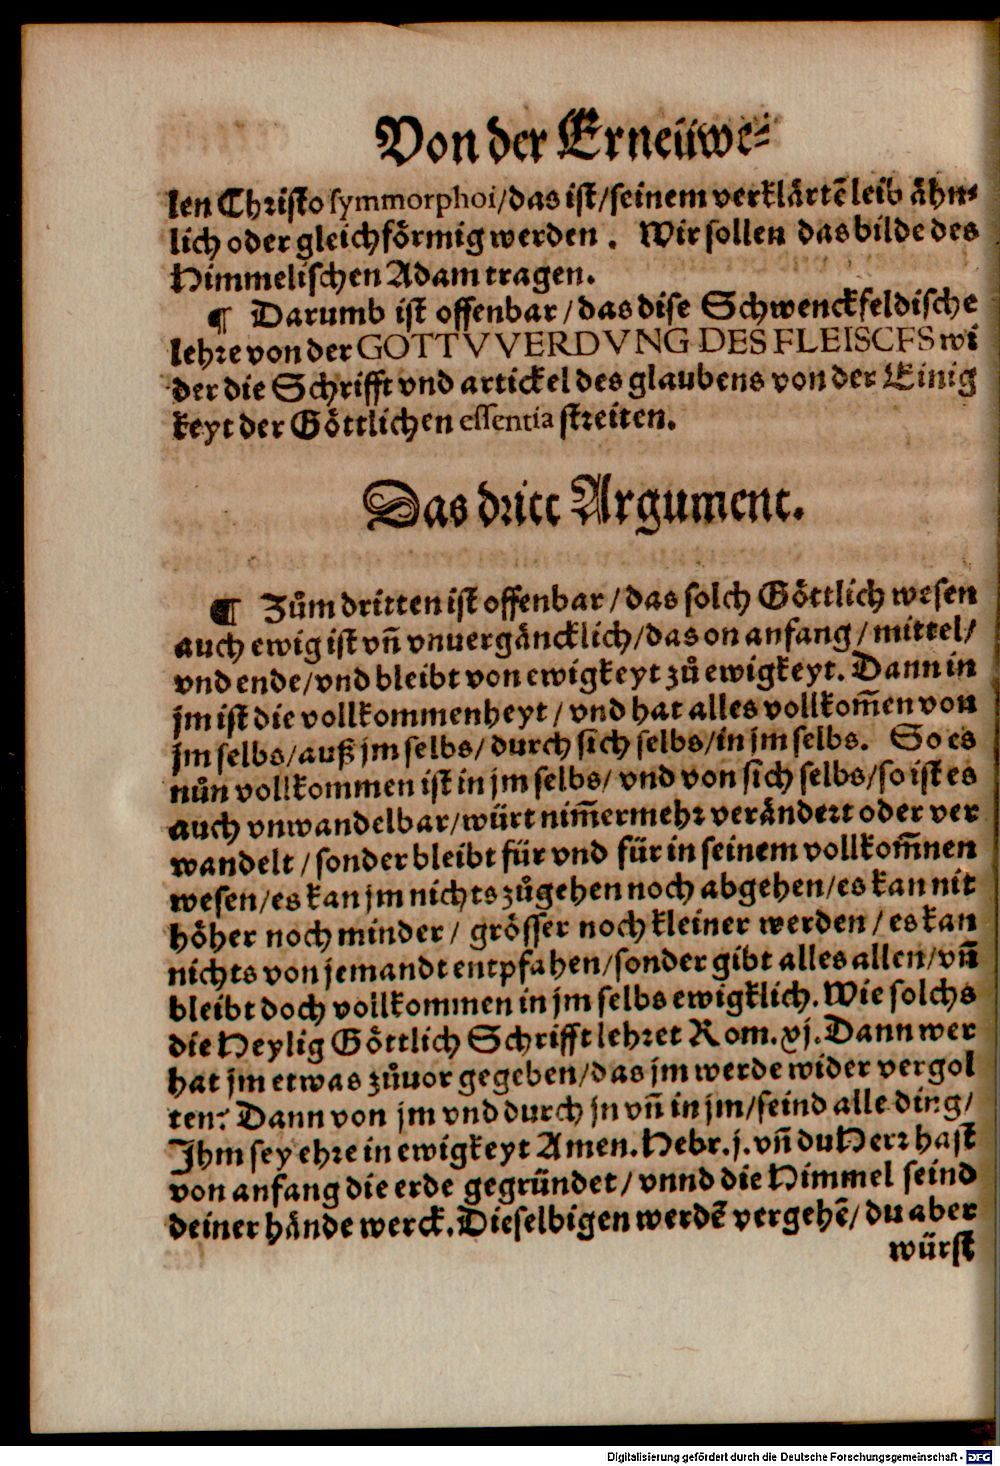 Von der Erneüwe⸗
len Christo symmorphoi/das ist/seinem verklärtē leib ähn⸗
lich oder gleichförmig werden . Wir sollen das bilde des
Himmelischen Adam tragen.
¶ Darumb ist offenbar/das dise Schwenckfeldische
lehre von der GOTTVVERDVNG DES FLEISCFS wi
der die Schrifft vnd artickel des glaubens von der Einig
keyt der Göttlichen essentia streiten.
Das dritt Argument.
¶ Zům dritten ist offenbar/das solch Göttlich wesen
auch ewig ist vn̄ vnuergäncklich/das on anfang/mittel/
vnd ende/vnd bleibt von ewigkeyt zů ewigkeyt. Dann in
jm ist die vollkommenheyt/vnd hat alles vollkom̄en von
jm selbs/auß jm selbs/durch sich selbs/in jm selbs. So es
nůn vollkommen ist in jm selbs/vnd von sich selbs/so ist es
auch vnwandelbar/würt nim̄ermehr verändert oder ver
wandelt/sonder bleibt für vnd für in seinem vollkom̄nen
wesen/es kan jm nichts zůgehen noch abgehen/es kan nit
höher noch minder/grösser noch kleiner werden/es kan
nichts von jemandt entpfahen/sonder gibt alles allen/vn̄
bleibt doch vollkommen in jm selbs ewigklich. Wie solchs
die Heylig Göttlich Schrifft lehret Rom. xj. Dann wer
hat jm etwas zůuor gegeben/das jm werde wider vergol
ten? Dann von jm vnd durch jn vn̄ in jm/seind alle ding/
Ihm sey ehre in ewigkeyt Amen. Hebr. j. vn̄ du Herr hast
von anfang die erde gegründet/vnnd die Himmel seind
deiner hände werck. Dieselbigen werdē vergehē/du aber
würst
Digitalisierung gefördert durch die Deutsche Forschungsgemeinschaft - DFG